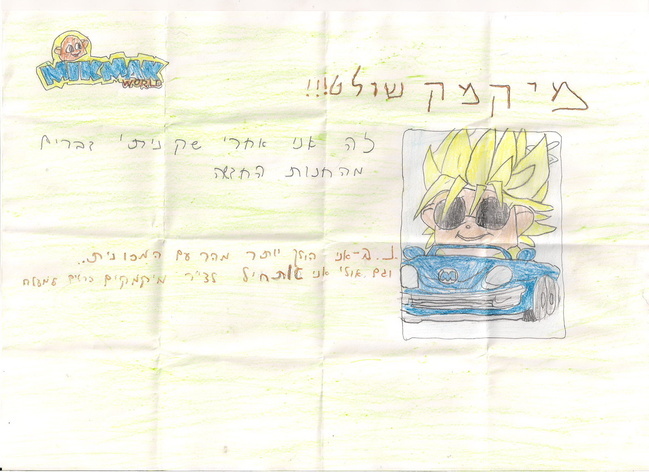 MIKMAK
WORLD
מיקמק שולט!!!
זה אני אחרי שקניתי דברים
מהחנות החדשה
נ.ב-אני הולך יותר מהר עם המכונית..
וגם אולי אני אתחיל לצייר מיקמקים